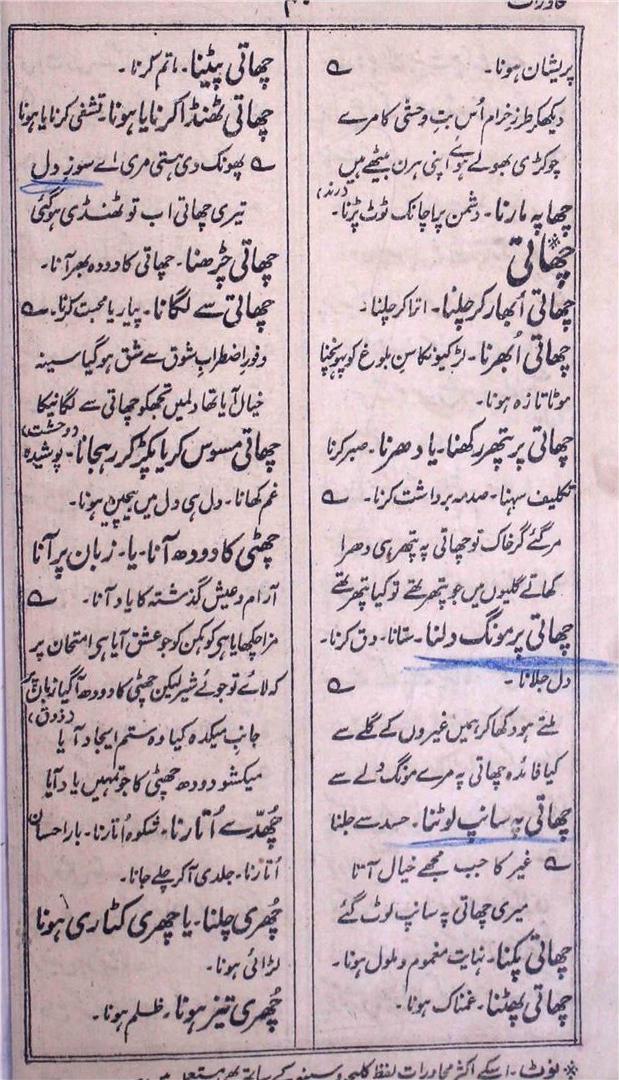 محاورات
پریشان ہونا۔ ؎
دیکھکر طرزِ خرام اُس بتِ وحشی کا مرے
چوکڑی بھولے ہوئے اپنی ہرن بیٹھے ہیں
(رند)
چھاپہ مارنا۔ دشمن پر اچانک ٹوٹ پڑنا۔
چھاتی*
چھاتی اُبھار کر چلنا۔ اترا کر چلنا۔
چھاتی اُبھرنا۔ لڑکیونکا سن بلوغ کو پہونچنا
موٹا تازہ ہونا۔
چھاتی پر پتھر رکھنا۔ یا دھرنا۔ صبر کرنا
تکلیف سہنا۔ صدمہ برداشت کرنا۔ ؎
مر گئے گر خاک تو چھاتی پہ پتھر ہی دھرا
کھاتے گلیوں میں جو پتھر تھے تو کیا پتھر تھے
چھاتی پر مونگ دلنا۔ ستانا۔ دق کرنا۔
دل جلانا۔ ؎
ملتے ہو دکھا کر ہمیں غیروں کے گلے سے
کیا فائدہ چھاتی پہ مرے مونگ دلے سے
چھاتی پہ سانپ لوٹنا۔ حسد سے جلنا
؎ غیر کا جب مجھے خیال آتا
میری چھاتی پہ سانپ لوٹ گئے
چھاتی پکنا۔ نہایت مغموم و ملول ہونا۔
چھاتی پھٹنا۔ غمناک ہونا۔
چھاتی پیٹنا۔ ماتم کرنا۔
چھاتی ٹھنڈا کرنا یا ہونا۔ تشفی کرنا یا ہونا
؎ پھونک دی ہستی مری اے سوزِ دل
تیری چھاتی اب تو ٹھنڈی ہو گئی
چھاتی چڑھنا۔ چھاتی کا دودھ بھر آنا۔
چھاتی سے لگانا۔ پیار یا محبت کرنا۔ ؎
وفورِ اضطرابِ شوق سے شق ہو گیا سینہ
خیال آیا تھا دلمیں تجھکو چھاتی سے لگانیکا
(وحشت)
چھاتی مسوس کر یا پکڑ کر رہجانا۔ پوشیدہ
غم کھانا۔ دل ہی دل میں بیچین ہونا۔
چھٹی کا دودھ آنا۔ یا۔ زبان پر آنا
آرام و عیش گذشتہ کا یاد آنا۔ ؎
مزا چکھایا ہی کوہکن کو جو عشق آیا ہی امتحان پر
کہ لائے تو جوئے شیر لیکن چھٹی کا دودھ آگیا زبان پر
(ذوق)
جانب میکدہ کیا وہ ستم ایجاد آیا
میکشو دودھ چھٹی کا جو تمہیں یاد آیا
چھدّے اُتارنا۔ شکوہ اُتارنا۔ بارِ احسان
اُتارنا۔ جلدی آکر چلے جانا۔
چھری چلنا۔ یا چھری کٹاری ہونا
لڑائی ہونا۔
چھری تیز ہونا۔ ظلم ہونا۔
* نوٹ۔ اسکے اکثر محاورات لفظ کلیجہ و سینہ کے ساتھ بھی مستعمل ہیں